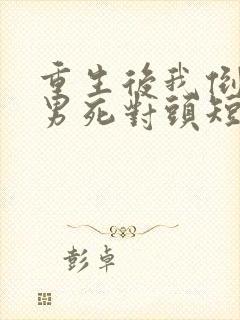 重生後我倒
男死對頭短
彭卓